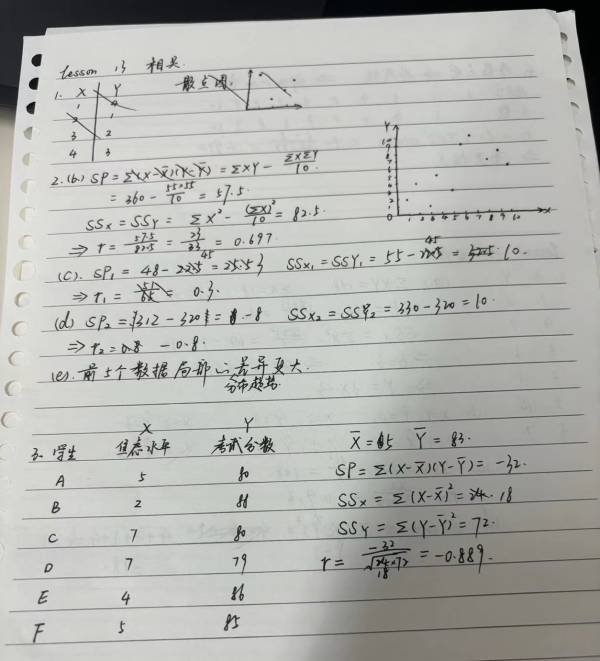 Lesson 13 相关.
1. X Y 散点图.
1 4
2 1
3 2
4 3
2.(b.) SP=Σ(X-X̄)(Y-Ȳ)=ΣXY- ΣXΣY/10
=360- 55×55/10 = 57.5.
SSx=SSY= ΣX²- (ΣX)²/10 = 82.5.
⇒ r= 57.5/82.5 = 23/33 = 0.697
(c). SP₁ = 48-45 = 3 SSx₁=SSY₁=55-45=10.
⇒ r₁= 0.3.
(d) SP₂=312-320=-8 SSx₂=SSY₂=330-320=10.
⇒ r₂= -0.8.
(e). 前5个数据局部的差异更大.
分布趋势
Y
10
9
8
7
6
5
4
3
2
1
0 1 2 3 4 5 6 7 8 9 10 X
X Y
3. 学生 焦虑水平 考试分数
A 5 80
B 2 88
C 7 80
D 7 79
E 4 86
F 5 85
X̄=5 Ȳ=83.
SP=Σ(X-X̄)(Y-Ȳ)=-32.
SSx=Σ(X-X̄)²=18
SSY=Σ(Y-Ȳ)²=72.
r= -32/√18×72 = -0.889.